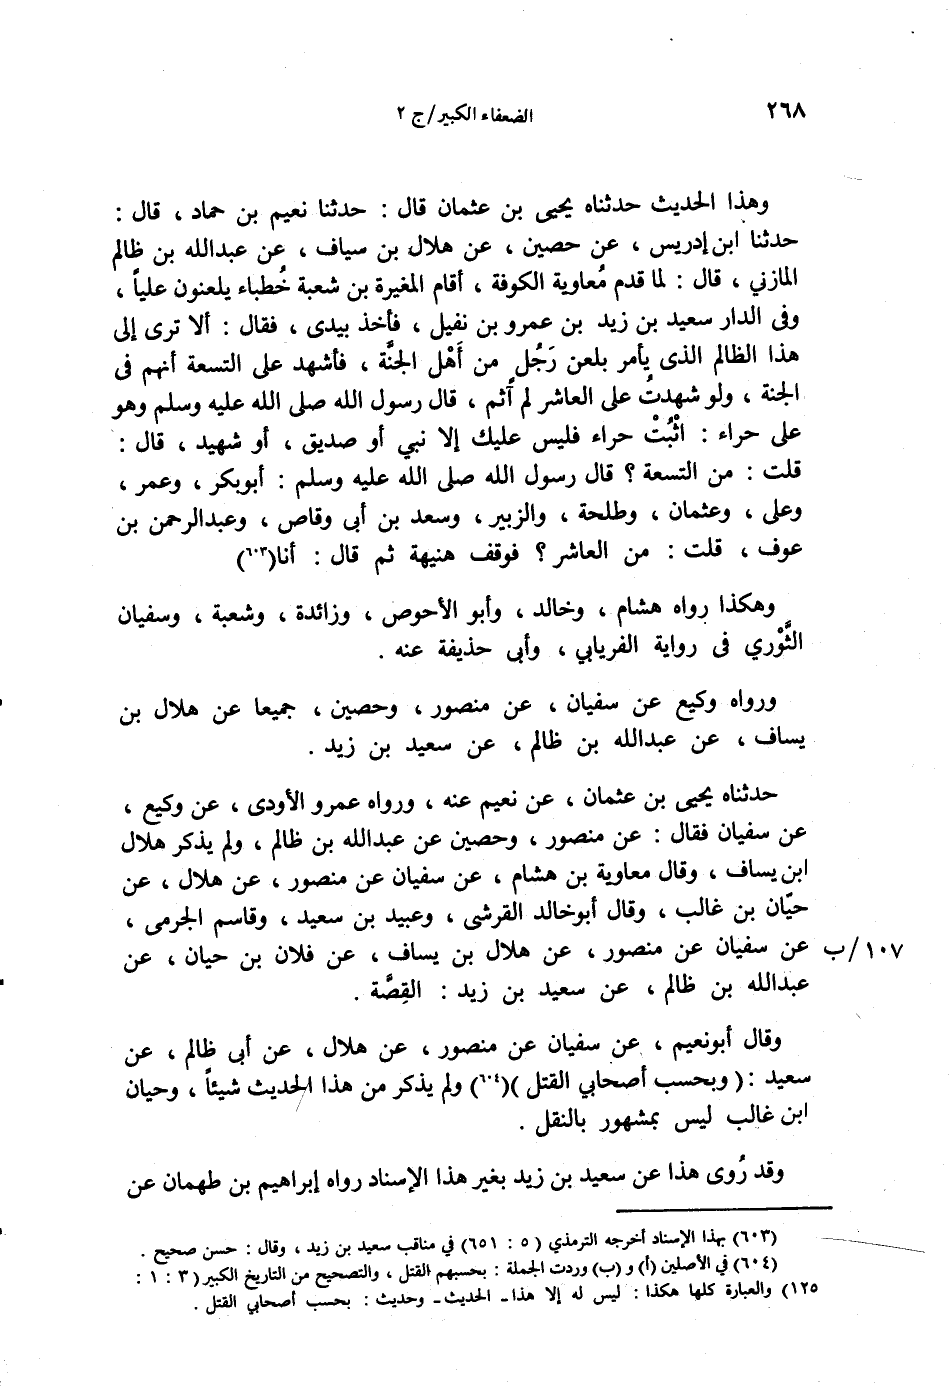 ٢٦٨
الضعفاء الكبير/ج ٢
وهذا الحديث حدثناه يحيى بن عثمان قال : حدثنا نعيم بن حماد ، قال :
حدثنا ابن إدريس ، عن حصين ، عن هلال بن سياف ، عن عبدالله بن ظالم
المازني ، قال : لما قدم مُعاوية الكوفة ، أقام المغيرة بن شعبة خُطباء يلعنون علياً ،
وفى الدار سعيد بن زيد بن عمرو بن نفيل ، فأخذ بيدى ، فقال : ألا ترى إلى
هذا الظالم الذى يأمر بلعن رَجُلٍ من أَهْل الجنَّة ، فأشهد على التسعة أنهم فى
الجنة ، ولو شهدتُ على العاشر لم أثم ، قال رسول الله صلى الله عليه وسلم وهو
على حراء : اثْبُتْ حراء فليس عليك إلا نبي أو صديق ، أو شهيد ، قال :
قلت : من التسعة ؟ قال رسول الله صلى الله عليه وسلم : أبوبكر ، وعمر ،
وعلى ، وعثمان ، وطلحة ، والزبير ، وسعد بن أبى وقاص ، وعبدالرحمن بن
عوف ، قلت : من العاشر ؟ فوقف هنيهة ثم قال : أنا(٦٠٣)
وهكذا رواه هشام ، وخالد ، وأبو الأحوص ، وزائدة ، وشعبة ، وسفيان
الثَّوْري فى رواية الفريابي ، وأبى حذيفة عنه .
ورواه وكيع عن سفيان ، عن منصور ، وحصين ، جميعا عن هلال بن
يساف ، عن عبدالله بن ظالم ، عن سعيد بن زيد .
حدثناه يحيى بن عثمان ، عن نعيم عنه ، ورواه عمرو الأودى ، عن وكيع ،
عن سفيان فقال : عن منصور ، وحصين عن عبدالله بن ظالم ، ولم يذكر هلال
ابن يساف ، وقال معاوية بن هشام ، عن سفيان عن منصور ، عن هلال ، عن
حيّان بن غالب ، وقال أبوخالد القرشى ، وعبيد بن سعيد ، وقاسم الجرمى ،
١٠٧/ب عن سفيان عن منصور ، عن هلال بن يساف ، عن فلان بن حيان ، عن
عبدالله بن ظالم ، عن سعيد بن زيد : القِصَّة .
وقال أبونعيم ، عن سفيان عن منصور ، عن هلال ، عن أبى ظالم ، عن
سعيد : ( وبحسب أصحابي القتل )(٦٠٤) ولم يذكر من هذا الحديث شيئاً ، وحيان
ابن غالب ليس بمشهور بالنقل .
وقد رُوى هذا عن سعيد بن زيد بغير هذا الإسناد رواه إبراهيم بن طهمان عن
(٦٠٣) بهذا الإسناد أخرجه الترمذي ( ٥ : ٦٥١) في مناقب سعيد بن زيد ، وقال : حسن صحيح .
(٦٠٤) في الأصلين (أ) و (ب) وردت الجملة : بحسبهم القتل ، والتصحيح من التاريخ الكبير ( ٣ : ١ :
١٢٥) والعبارة كلها هكذا : ليس له إلا هذا ـ الحديث ـ وحديث : بحسب أصحابي القتل .